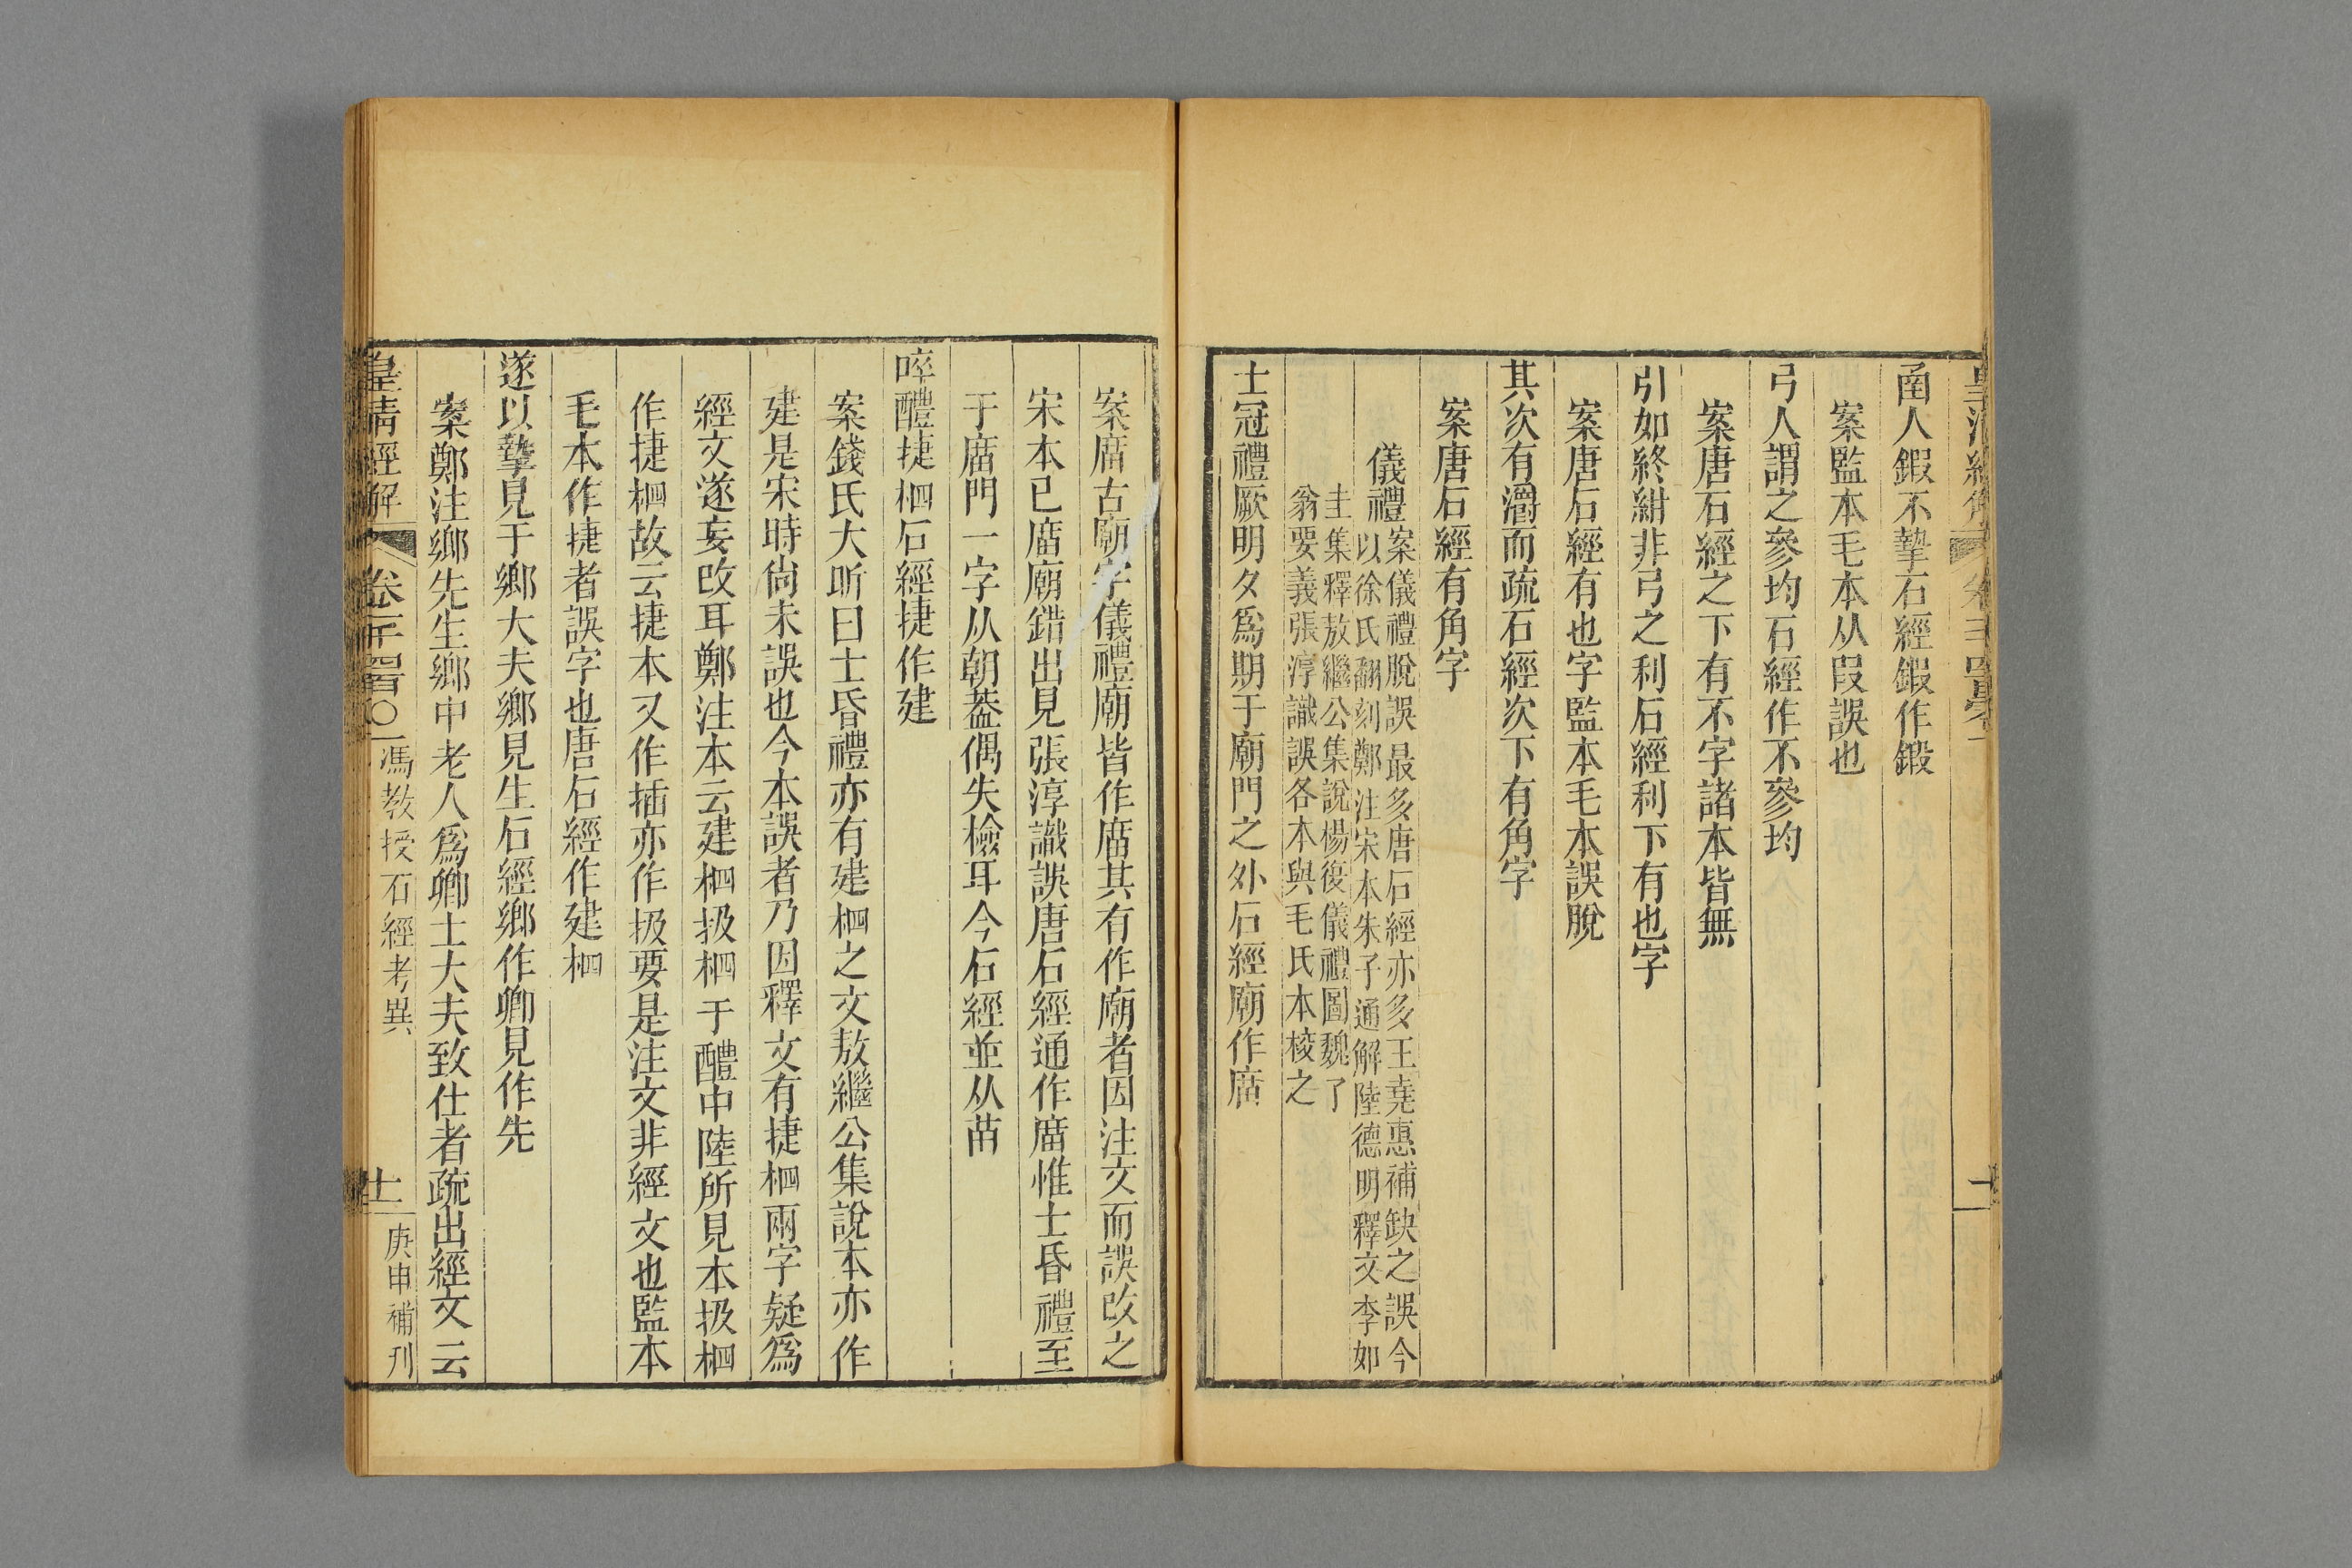 函人鍜不摯石經鍜作鍛
案監本毛本从叚誤也
弓人謂之參均石經作不參均
案唐石經之下有不字諸本皆無
引如終紲非弓之利石經利下有也字
案唐石經有也字監本毛本誤脫
其次有灂而疏石經次下有角字
案唐石經有角字
儀禮案儀禮脫誤最多唐石經亦多王堯惠補缺之誤今
以徐氏翻刻鄭注宋本朱子通解陸德明釋文李如
圭集釋敖繼公集說楊復儀禮圖魏了
翁要義張淳識誤各本與毛氏本校之
士冠禮厥明夕爲期于廟門之外石經廟作庿
案庿古廟字儀禮廟皆作庿其有作廟者因注文而誤改之
宋本已庿廟錯出見張淳識誤唐石經通作庿惟士昏禮至
于庿門一字从朝葢偶失檢耳今石經並从苗
啐醴捷柶石經捷作建
案錢氏大昕曰士昏禮亦有建柶之文敖繼公集說本亦作
建是宋時尙未誤也今本誤者乃因釋文有捷柶兩字疑爲
經文遂妄改耳鄭注本云建柶扱柶于醴中陸所見本扱柶
作捷柶故云捷本又作插亦作扱要是注文非經文也監本
毛本作捷者誤字也唐石經作建柶
遂以摯見于鄉大夫鄉見生石經鄉作卿見作先
案鄭注鄉先生鄉中老人爲卿士大夫致仕者疏出經文云
皇淸經解 卷一千四百〇一 馮敎授石經考異 十一 庚申補刊